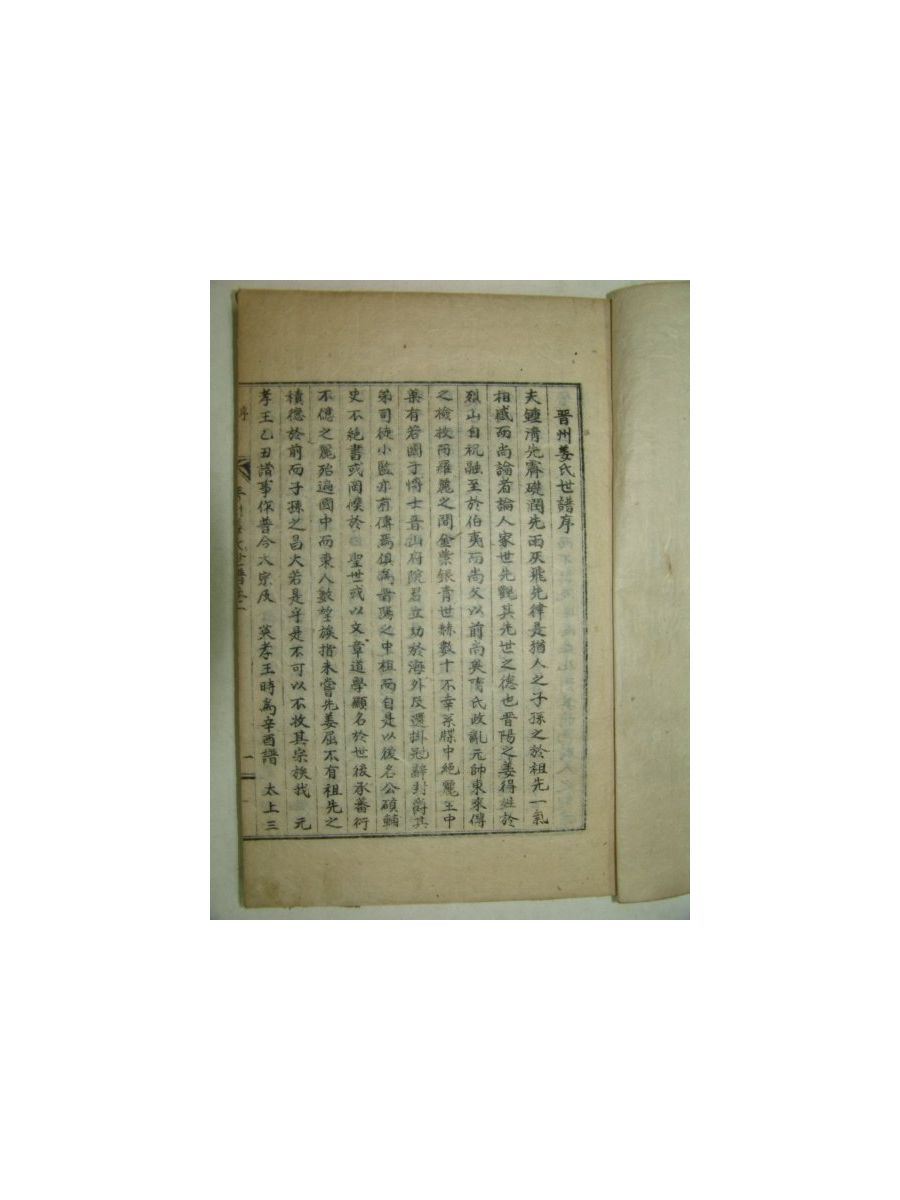 晋州姜氏世譜序
夫鍾清先霽礎潤先雨灰飛先律是猶人之子孫之於祖先一氣
相感而尚論者論人家世先觀其先世之德也晋陽之姜得姓於
烈山自祝融至於伯夷而尚父以前尚矣隋氏政亂元帥東來傳
之檢校而羅麗之間金紫銀青世赫數十不幸系牒中絶麗王中
葉有若國子博士晋山府院君立功於海外反還掛冠辭封爵其
弟司徒小監亦有傳焉俱為晋陽之中祖而自是以後名公碩輔
史不絶書或罔僕於 聖世或以文章道學顯名於世後承蕃衍
不億之麗殆遍國中而東人數望族指未嘗先姜屈不有祖先之
積德於前而子孫之昌大若是乎是不可以不收其宗族我 元
孝王乙丑譜事作普今大宗及 英孝王時為辛酉譜 太上三
序
晋州姜氏世譜卷之一
一